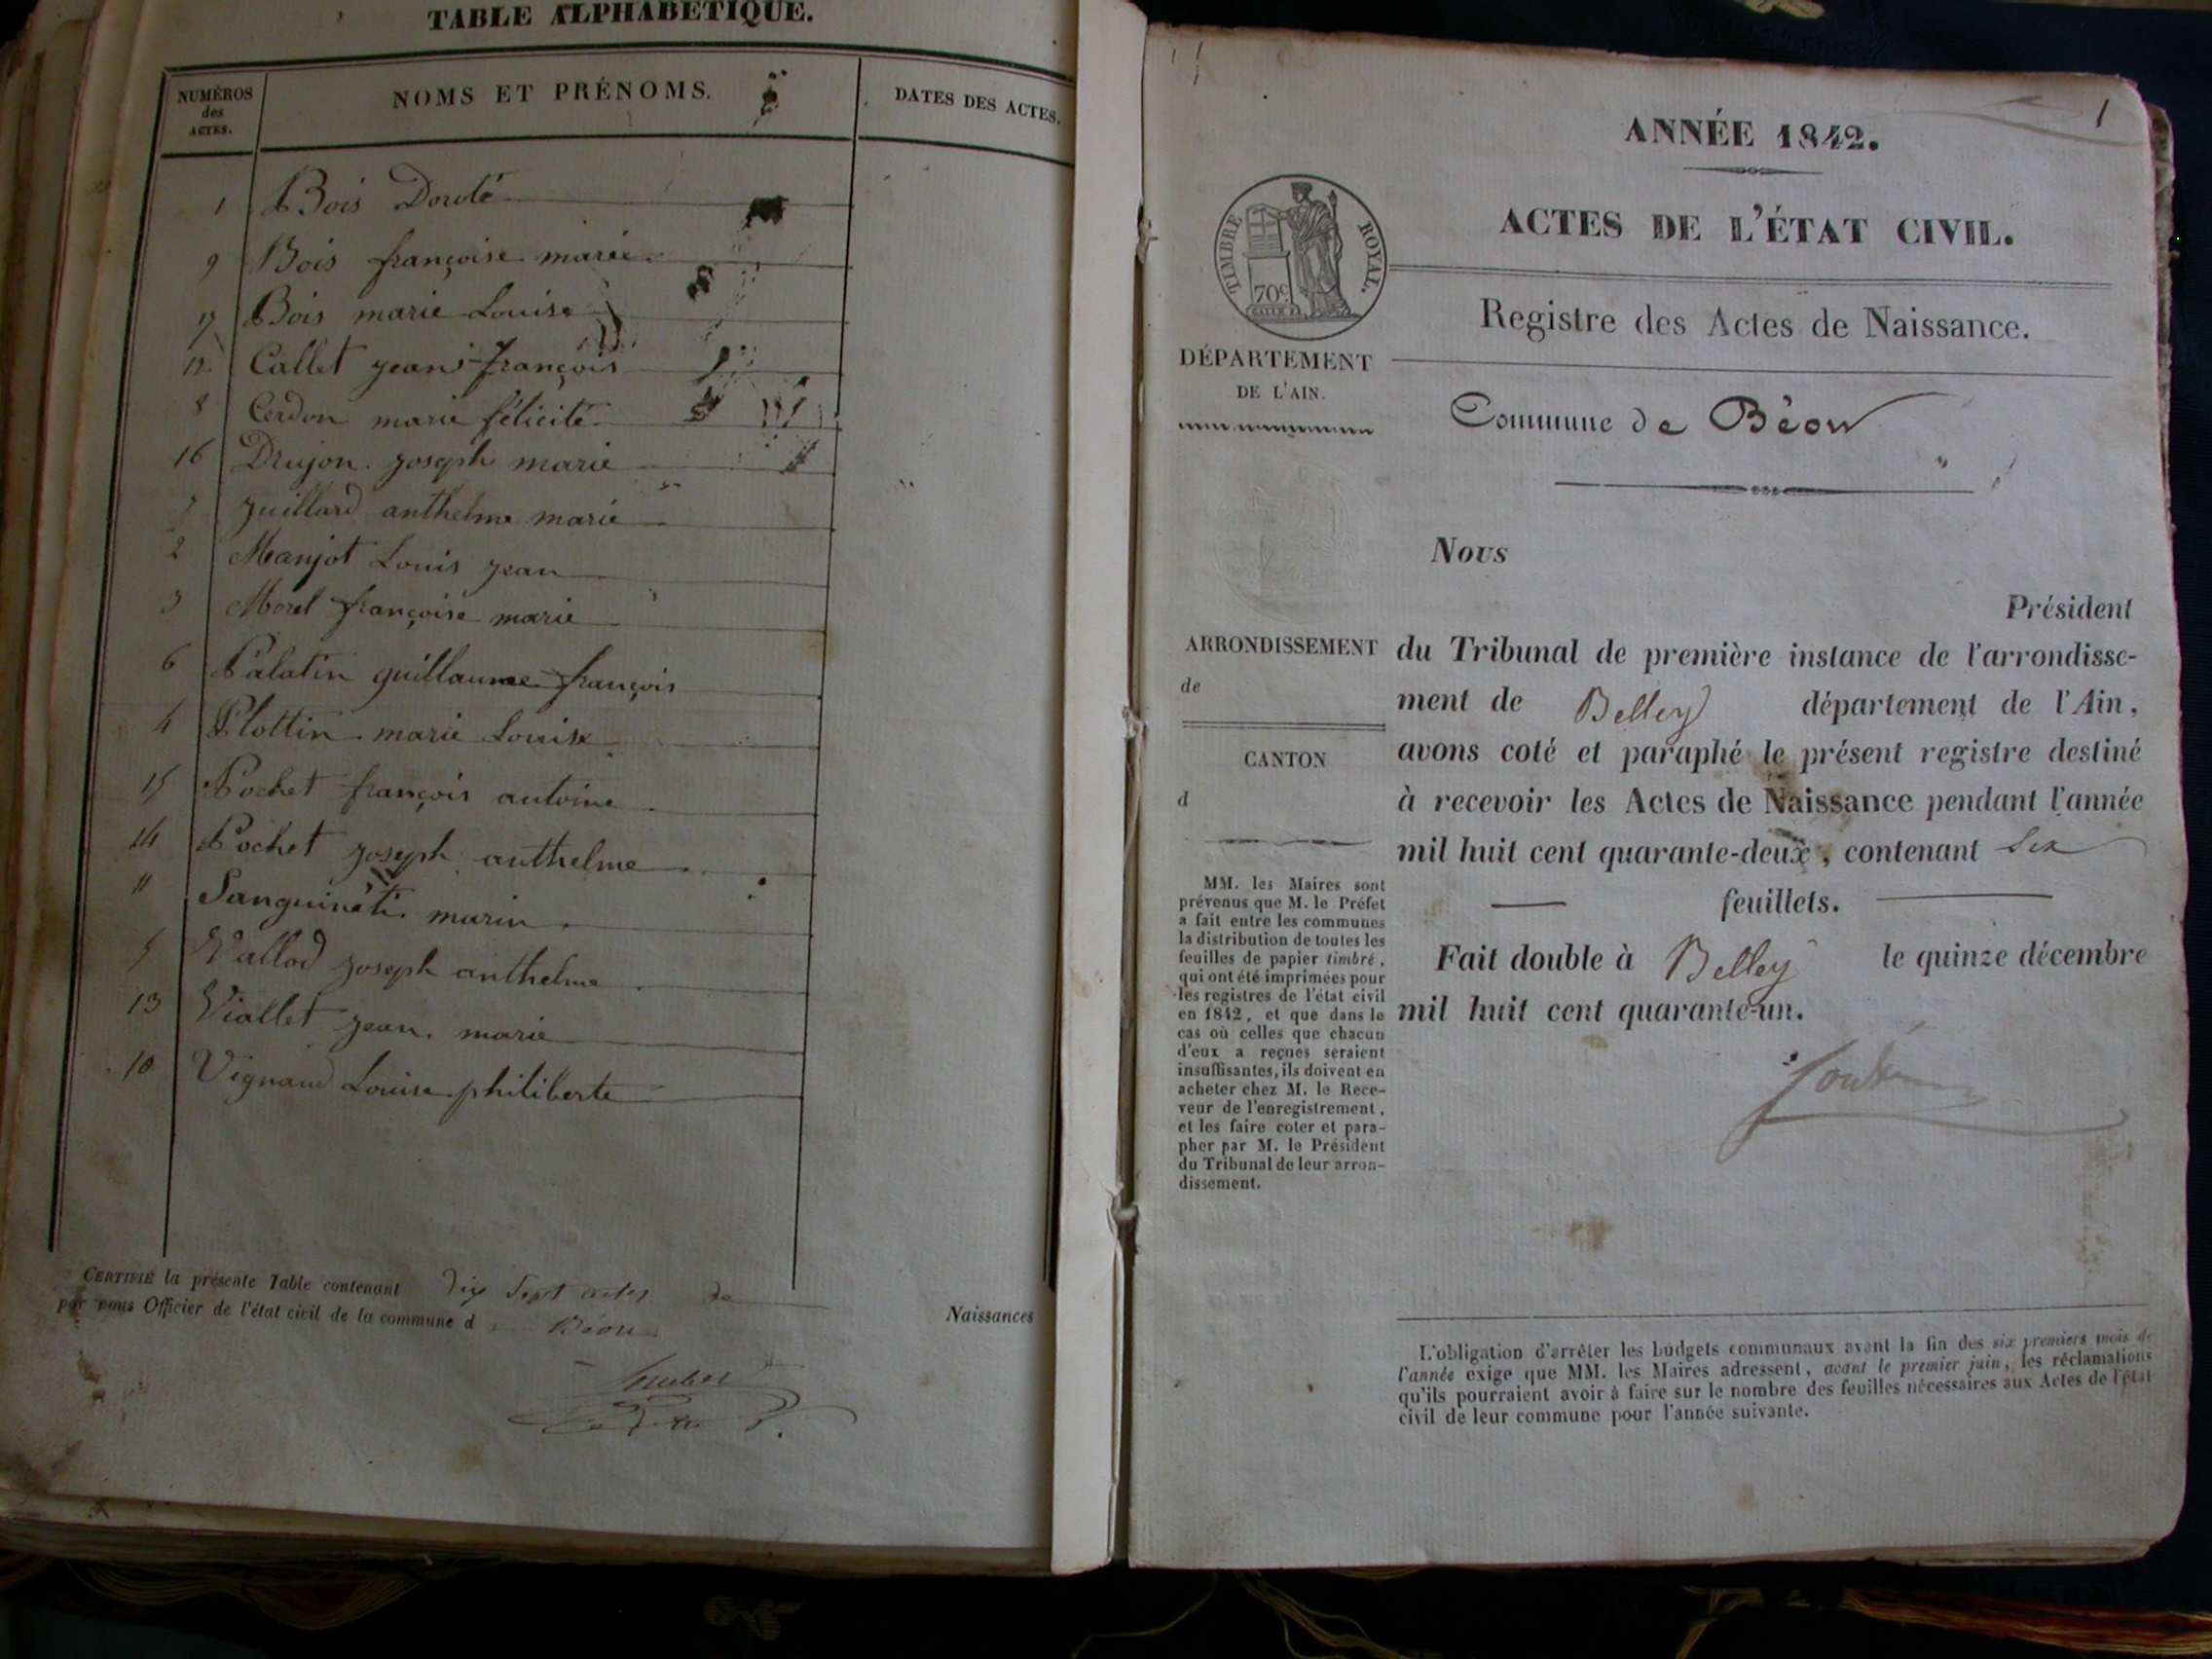 TABLE ALPHABÉTIQUE.
NUMÉROS
des
ACTES.
NOMS ET PRÉNOMS.
DATES DES ACTES.
1 Bois Doroté
9 Bois françoise marie
17 Bois marie Louise
12 Callet jean françois
8 Cerdon marie félicité
16 Drujon joseph marie
7 juillard anthelme marie
2 Manjot Louis jean
3 Morel françoise marie
6 Palatin guillaume françois
4 Plottin marie Louise
15 Pochet françois antoine
14 Pochet joseph anthelme
11 Sanguinéti marin
5 Vallod joseph anthelme
13 Viallet jean marie
10 Vignand Louise philiberte
CERTIFIÉ la présente Table contenant dix Sept actes de Naissances
par nous Officier de l'état civil de la commune d Béon
1
ANNÉE 1842.
ACTES DE L'ÉTAT CIVIL.
TIMBRE ROYAL.
70c
Registre des Actes de Naissance.
DÉPARTEMENT
DE L'AIN.
Commune de Béon
Nous
Président
ARRONDISSEMENT
de
CANTON
d
du Tribunal de première instance de l'arrondisse-
ment de Belley département de l'Ain,
avons coté et paraphé le présent registre destiné
à recevoir les Actes de Naissance pendant l'année
mil huit cent quarante-deux, contenant Six
feuillets.
Fait double à Belley le quinze décembre
mil huit cent quarante-un.
MM. les Maires sont
prévenus que M. le Préfet
a fait entre les communes
la distribution de toutes les
feuilles de papier timbré,
qui ont été imprimées pour
les registres de l'état civil
en 1842, et que dans le
cas où celles que chacun
d'eux a reçues seraient
insuffisantes, ils doivent en
acheter chez M. le Rece-
veur de l'enregistrement,
et les faire coter et para-
pher par M. le Président
du Tribunal de leur arron-
dissement.
L'obligation d'arrêter les budgets communaux avant la fin des six premiers mois de
l'année exige que MM. les Maires adressent, avant le premier juin, les réclamations
qu'ils pourraient avoir à faire sur le nombre des feuilles nécessaires aux Actes de l'état
civil de leur commune pour l'année suivante.